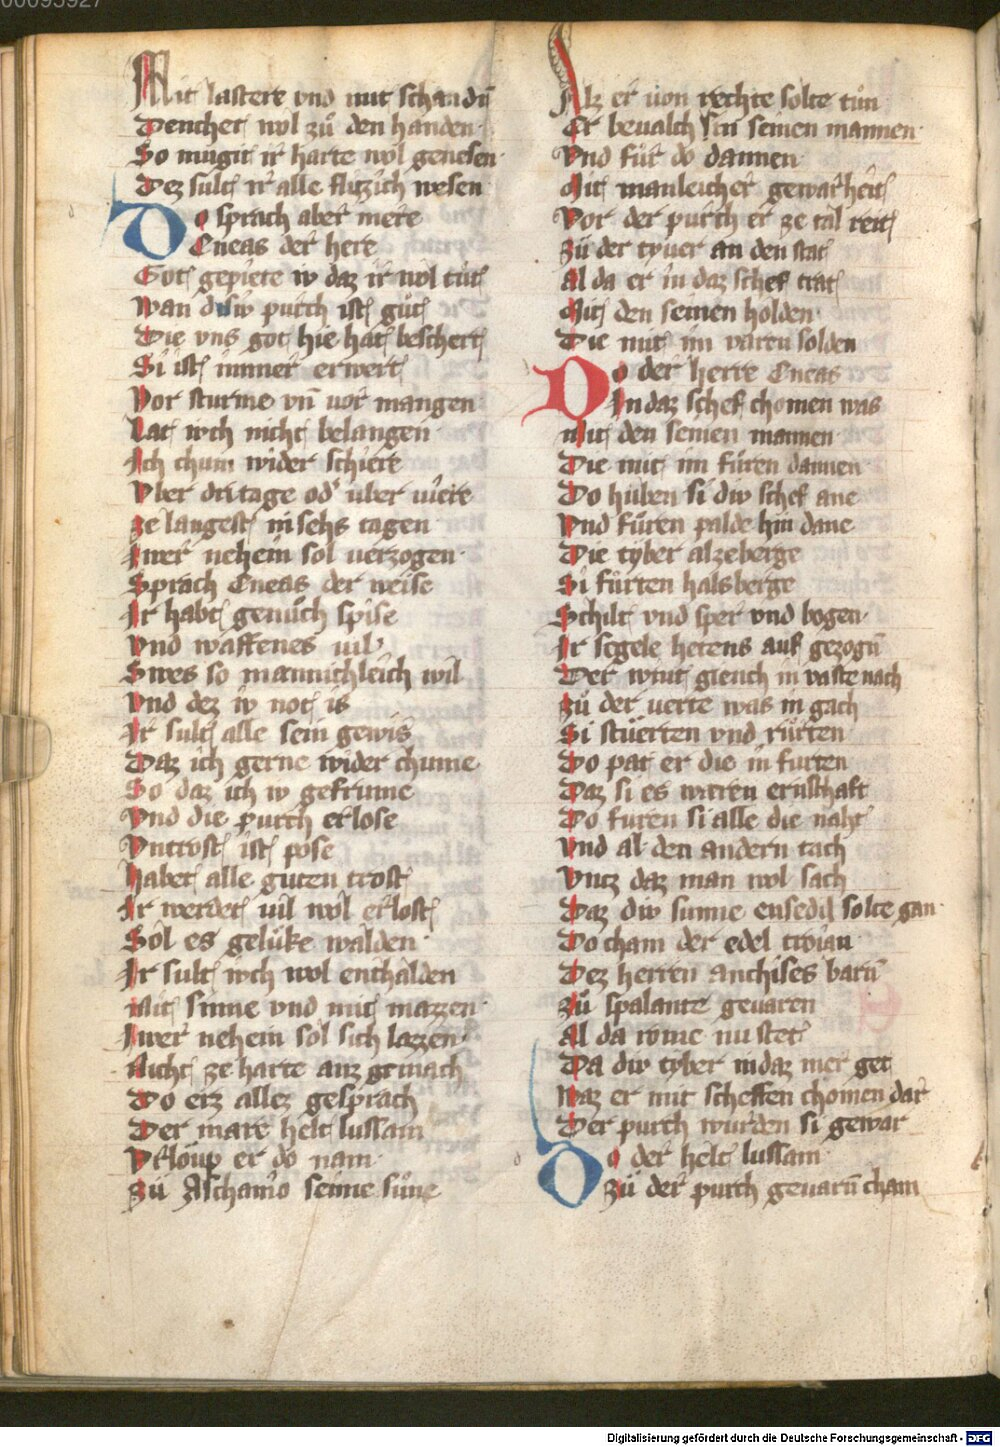 00095927
Mit lastere vnd mit schandn̄
Denchet wol zů den handen
So mugit ir harte wol genesen
Dez sult ir alle flizzich wesen
Do sprach aber mere
Eneas der here
Got gepiete iv daz ir wol tůt
Wan disiv purch ist gůt
Die vns got hie hat beschert
Si ist immer erwert
Vor sturme vn̄ vor mangen
Lat ivch nicht belangen
Ich chum wider schiere
Vber dri tage od' uber uiere
ze langest in sehs tagen
Iwer nehein sol uerzogen
Sprach Eneas der weise
Ir habt genůch spise
Vnd waffenes uil
Swes so mannichleich wil
Vnd dez iv not is
Ir sult alle sein gewis
Daz ich gerne wider chume
So daz ich iv gefrume
Vnd die purch erlose
Vntrost ist pose
Habet alle guten trost
Ir werdet uil wol erlost
Sol es gelůke walden
Ir sult ivch wol enthalden
Mit sinne vnd mit mazzen
Iwer nehein sol sich lazzen
Nicht ze harte anz gemach
Do erz allez gesprach
Der mare helt lussam
Vrloup er do nam
Zů Aschanio seime sůne
Alz er uon rechte solte tůn
Er beualch in seinen mannen
Vnd fůr do dannen
Mit manleicher gewarheit
Vor der purch er ze tal reit
Zů der tyuer an den stat
Al da er in daz schef trat
Mit den seinen holden
Die mit im varen solden
Do der herre Eneas
In daz schef chomen was
mit den seinen mannen
Die mit im fůren dannen
Do hůben si div schef ane
Vnd fůren palde hin dane
Die tyber alzeberge
Si fůrten halsberge
Schilt vnd sper vnd bogen
Ir segele hetens auf gezogn̄
Der wint giench in vaste nach
Zů der uerte was in gach
Si stůerten vnd růrten
Do pat er die in furten
Daz si es weren ernsthaft
Do furen si alle die naht
Vnd al den andern tach
Vntz daz man wol sach
Daz div sunne ensedil solte gan
Do cham der edel troian
Dez herren anchises barn̄
Zů spalante geuaren
Al da rome nu stet
Da div tyber in daz mer get
Waz er mit scheffen chomen dar
Der purch wurden si gewar
Do der helt lussam
Zů der purch geuarn̄ cham
Digitalisierung gefördert durch die Deutsche Forschungsgemeinschaft - DFG